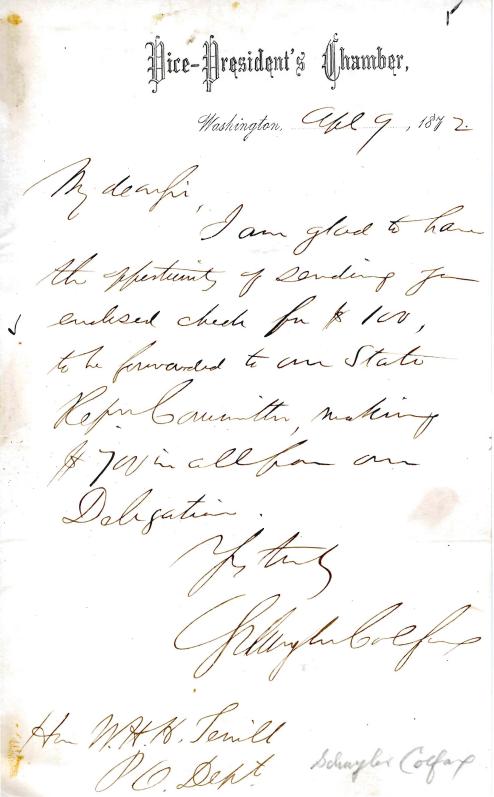 Vice-President's Chamber,
Washington, Apl 9, 1872.
My dear Sir,
I am glad to have
the opportunity of sending you
enclosed check for $100,
to be forwarded to our State
Repn Committee, making
$700 in all from our
Delegation.
Yrs truly
Schuyler Colfax
Hon W. H. H. Terrill
P O. Dept.
Schuyler Colfax